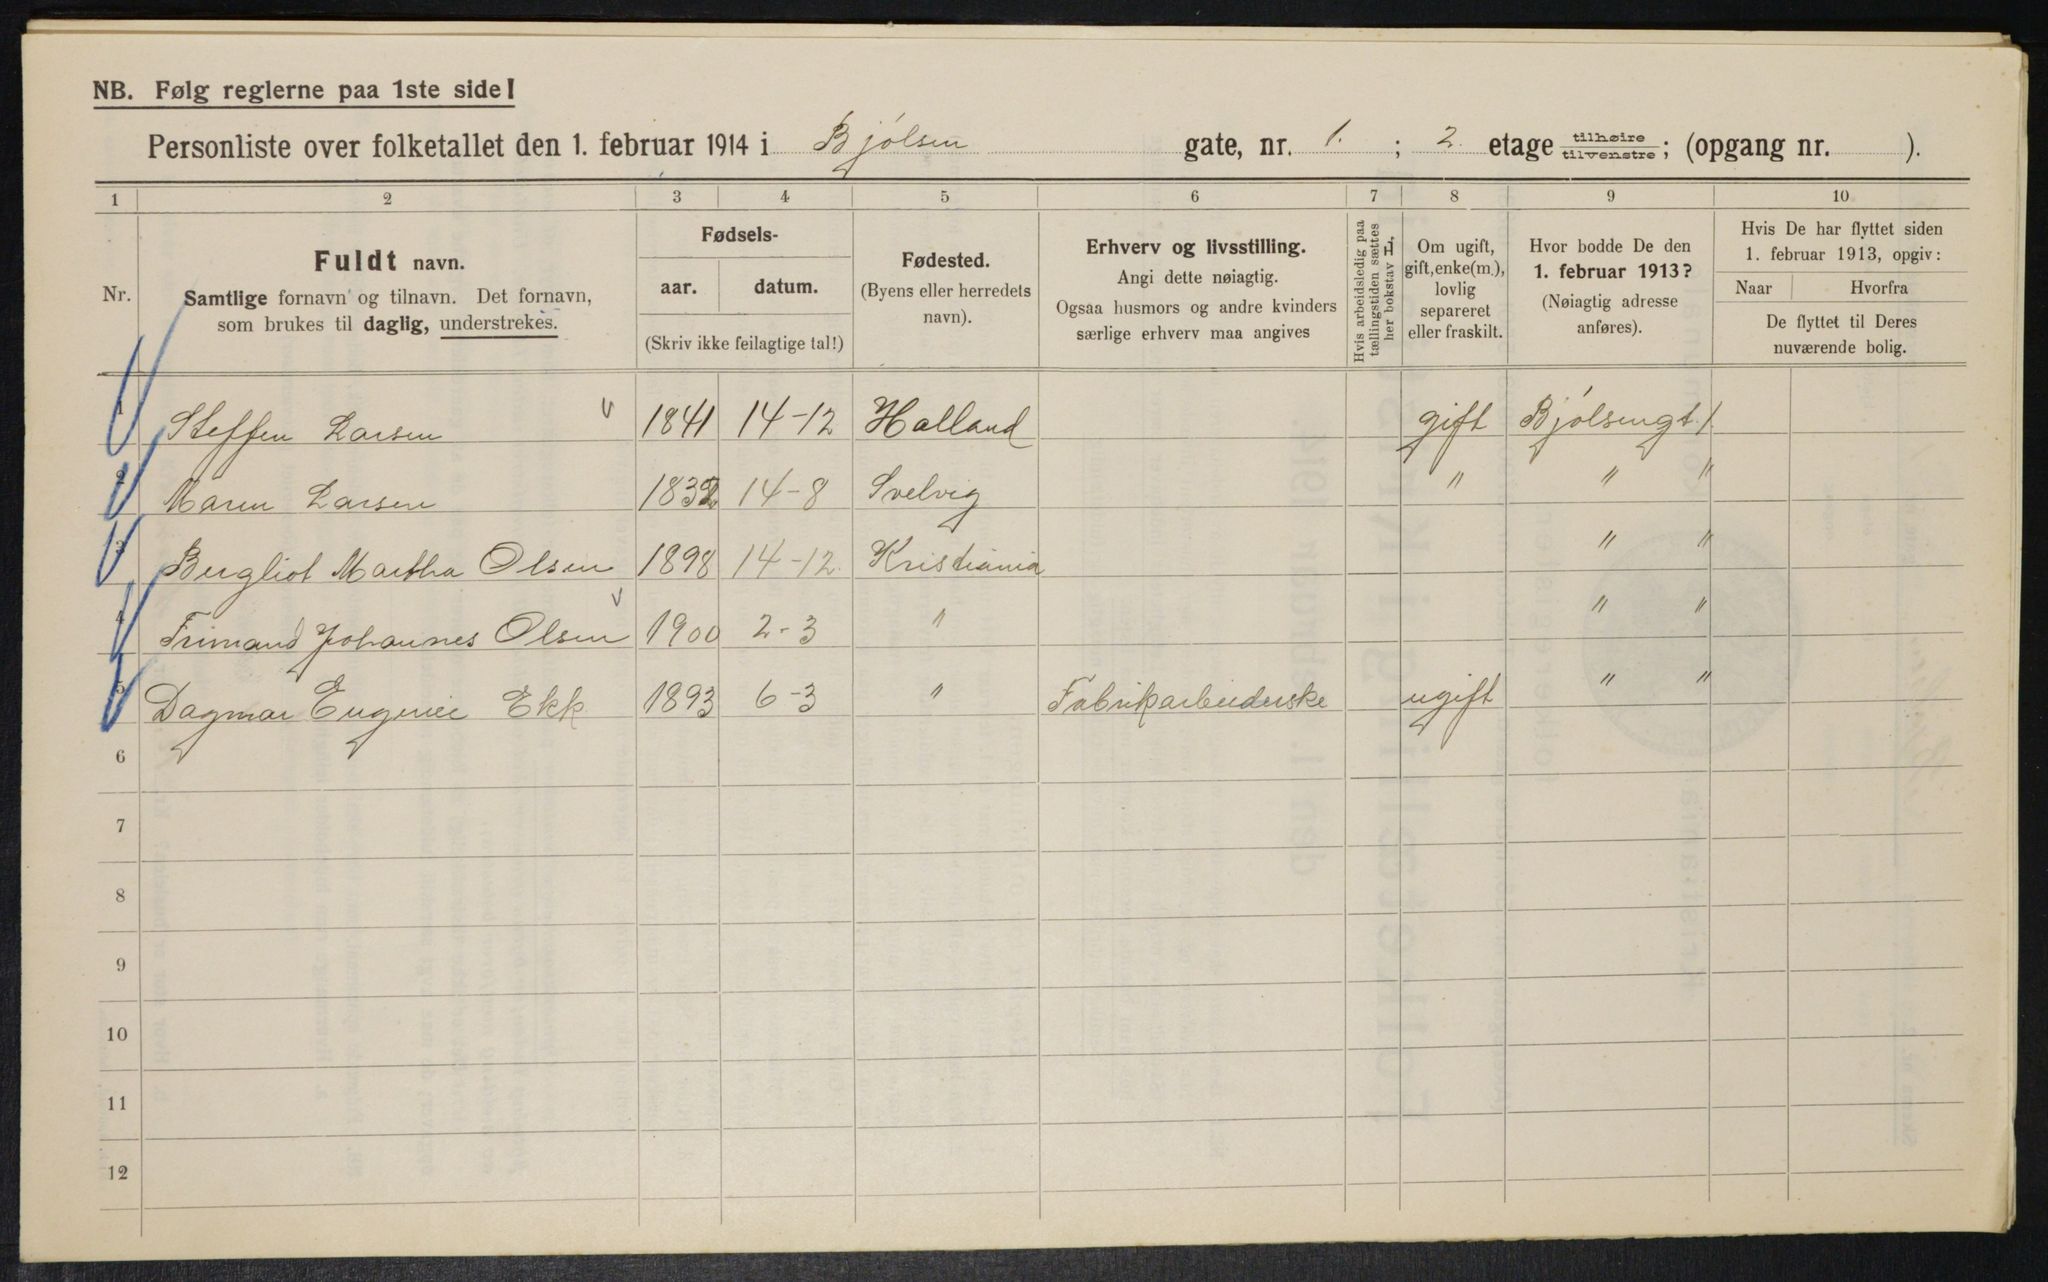 NB. Følg reglerne paa 1ste side!
Personliste over folketallet den 1. februar 1914 i Bjólsen gate, nr. 1. ; 2 etage tilhøire tilvenstre; (opgang nr. ).
1 2 3 4 5 6 7 8 9 10
Nr.
Fuldt navn.
Samtlige fornavn og tilnavn. Det fornavn,
som brukes til daglig, understrekes.
Fødsels-
aar. datum.
(Skriv ikke feilagtige tal!)
Fødested.
(Byens eller herredets
navn).
Erhverv og livsstilling.
Angi dette nøiagtig.
Ogsaa husmors og andre kvinders
særlige erhverv maa angives
Hvis arbeidsledig paa
tællingstiden sættes
her bokstav L.
Om ugift,
gift, enke(m.),
lovlig
separeret
eller fraskilt.
Hvor bodde De den
1. februar 1913?
(Nøiagtig adresse
anføres).
Hvis De har flyttet siden
1. februar 1913, opgiv:
Naar Hvorfra
De flyttet til Deres
nuværende bolig.
1 Steffen Larsen 1841 14-12 Holland gift Bjólsengt. 1
2 Maren Larsen 1832 14-8 Svelvig " " "
3 Bergliot Martha Olsen 1898 14-12. Kristiania " "
4 Johannes Olsen 1900 2-3 " " "
5 Dagmar Eugenie Ekk 1893 6-3 " Fabrikarbeiderske ugift " "
6
7
8
9
10
11
12